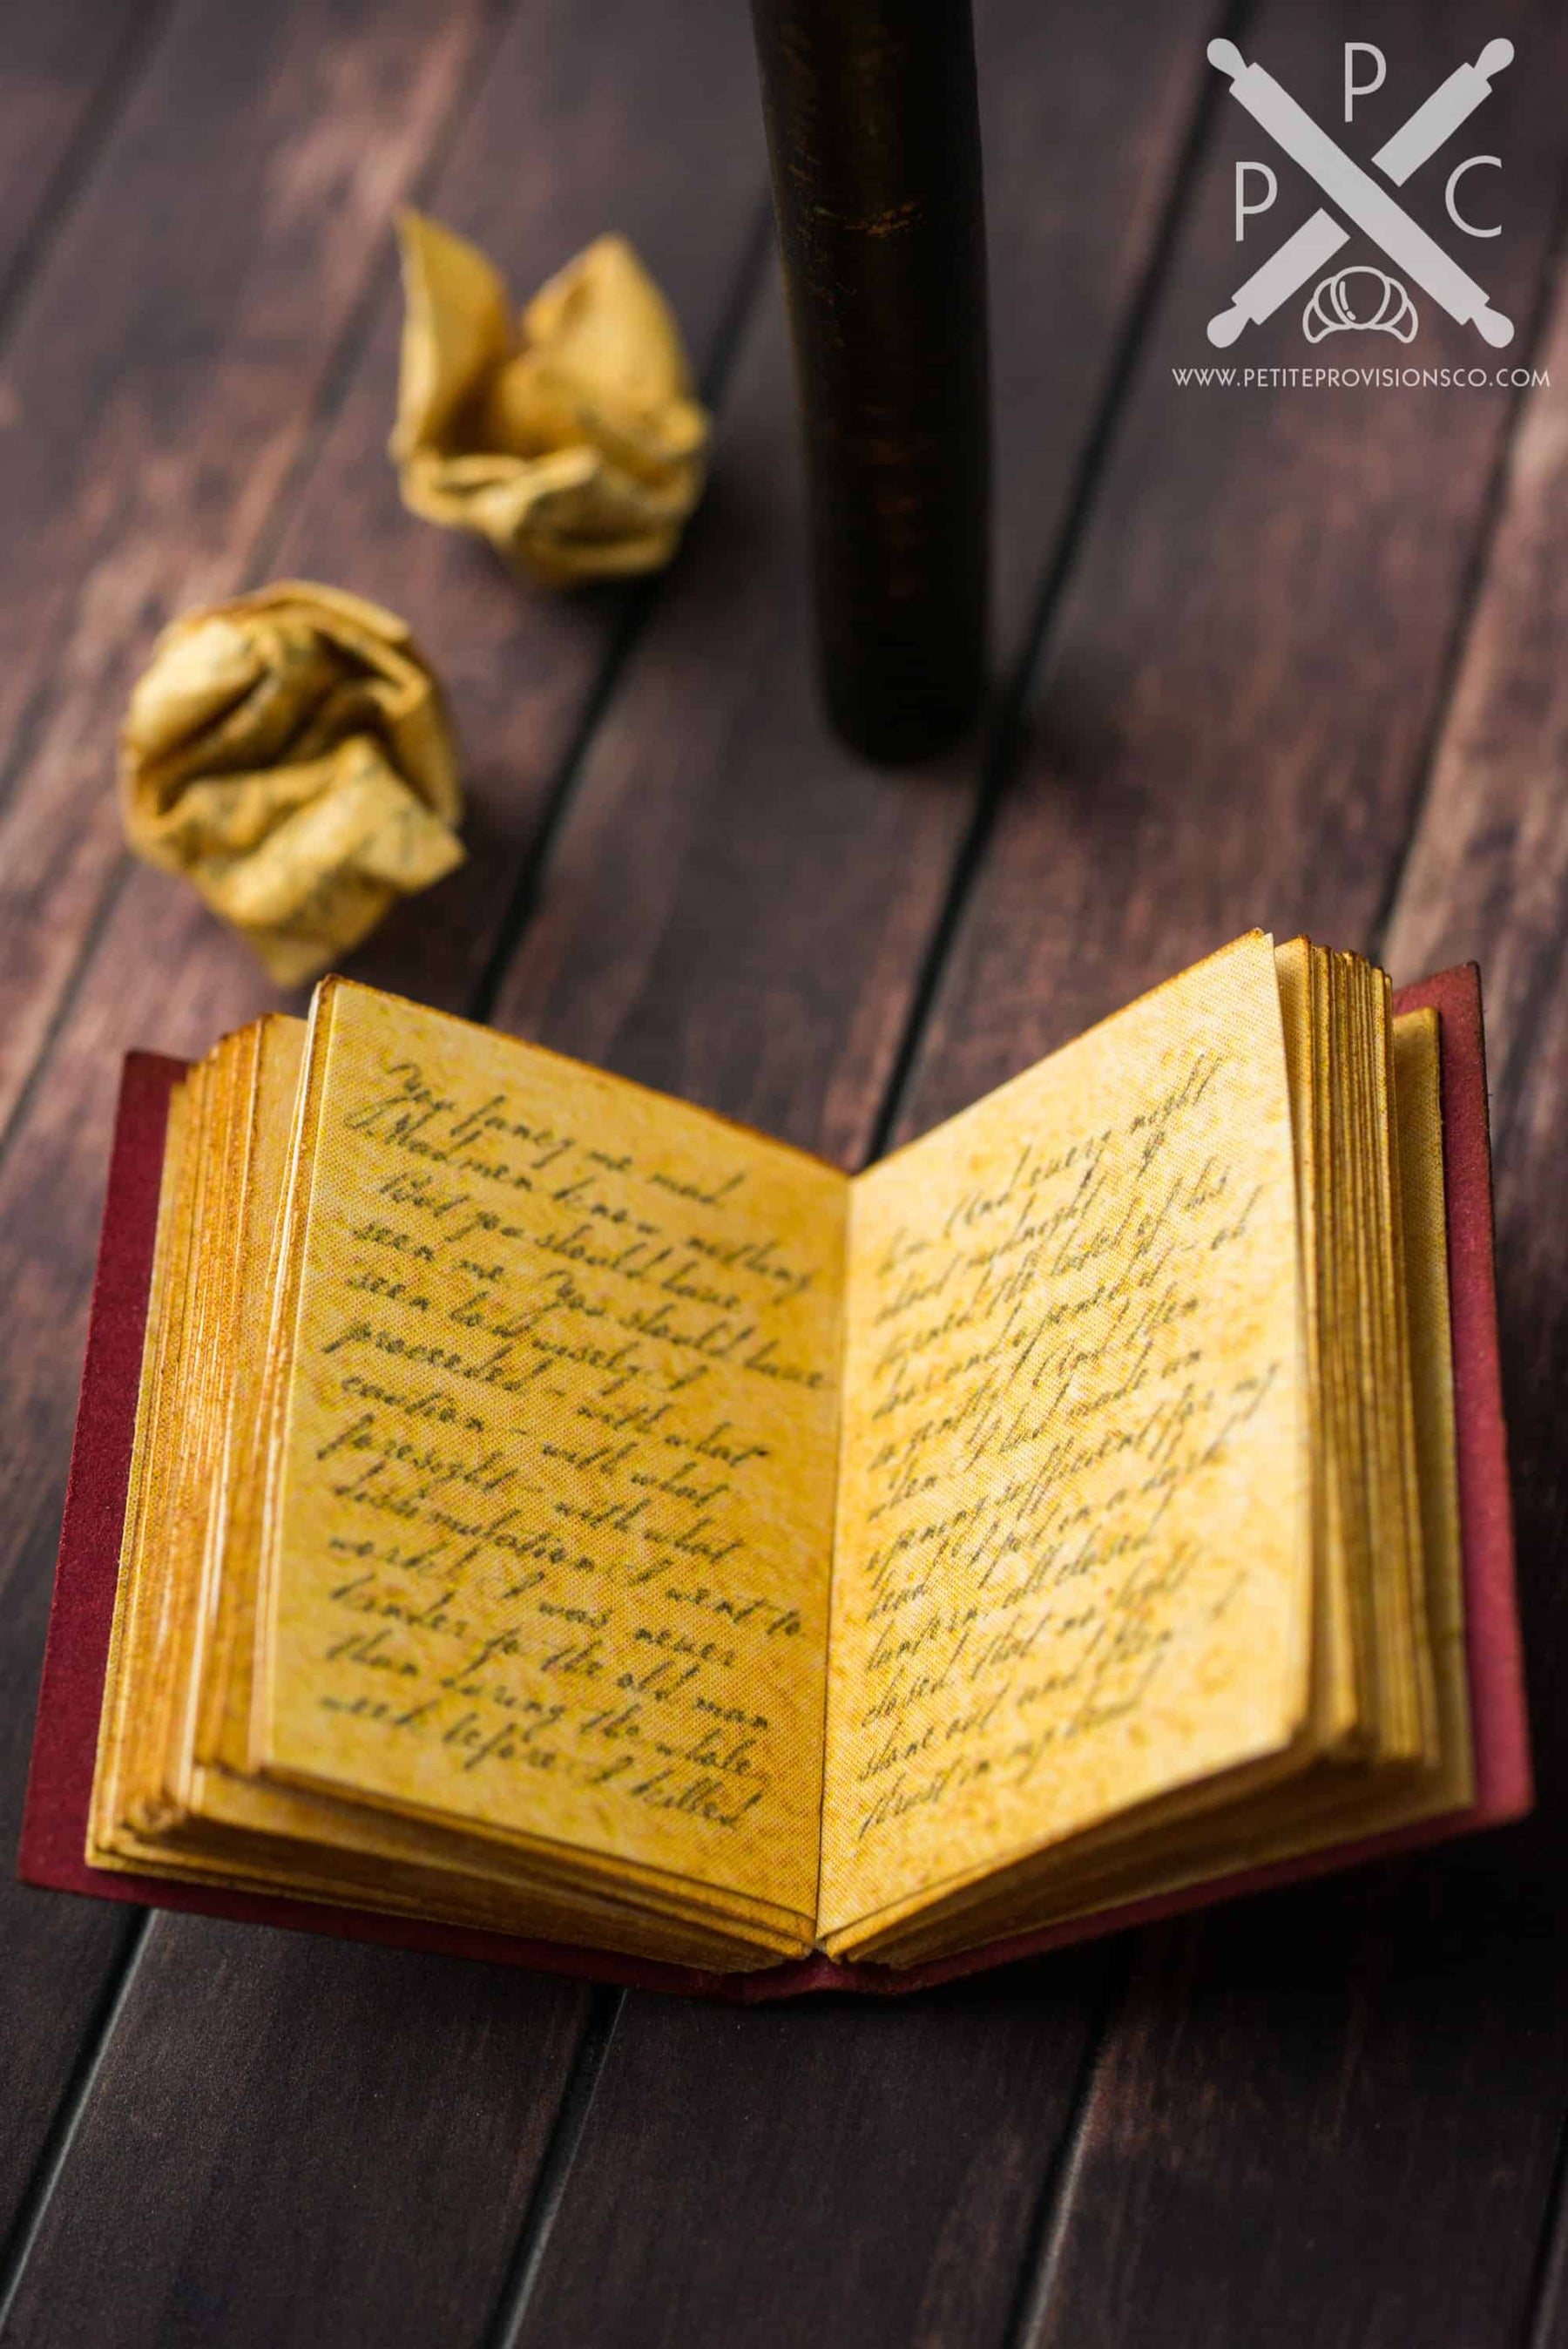 P
P C
WWW.PETITEPROVISIONSCO.COM
You fancy me mad.
Madmen know nothing.
But you should have
seen me. You should have
seen how wisely I
proceeded – with what
caution – with what
foresight – with what
dissimulation I went to
work! I was never
kinder to the old man
than during the whole
week before I killed
him. And every night
about midnight, I
turned the latch of his
door and opened it – oh
so gently! And then
when I had made an
opening sufficient for my
head I put in a dark
lantern, all closed,
closed, that no light
shone out and then I
thrust in my head.